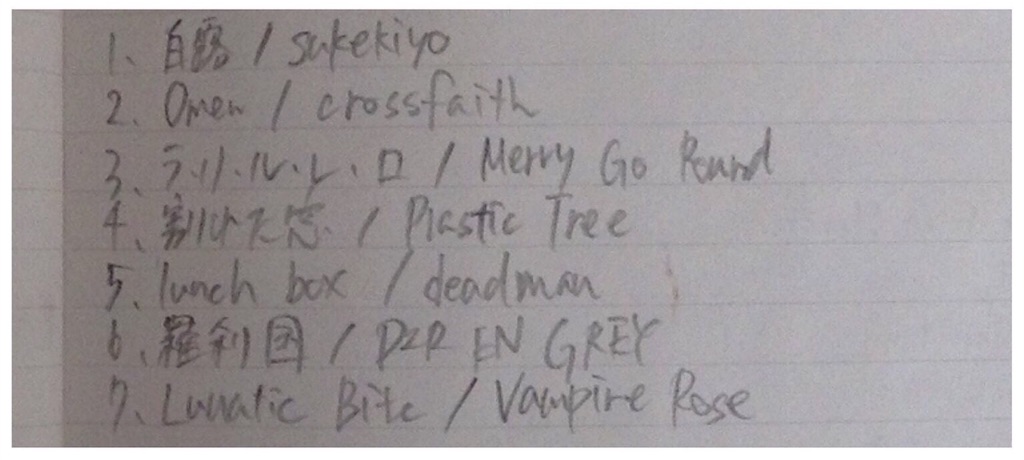 1、白露 / sukekiyo
2、Omen / crossfaith
3、ラ・リ・ル・レ・ロ / Merry Go Round
4、割れた窓 / Plastic Tree
5、lunch box / deadman
6、羅刹国 / DIR EN GREY
7、Lunatic Bite / Vampire Rose